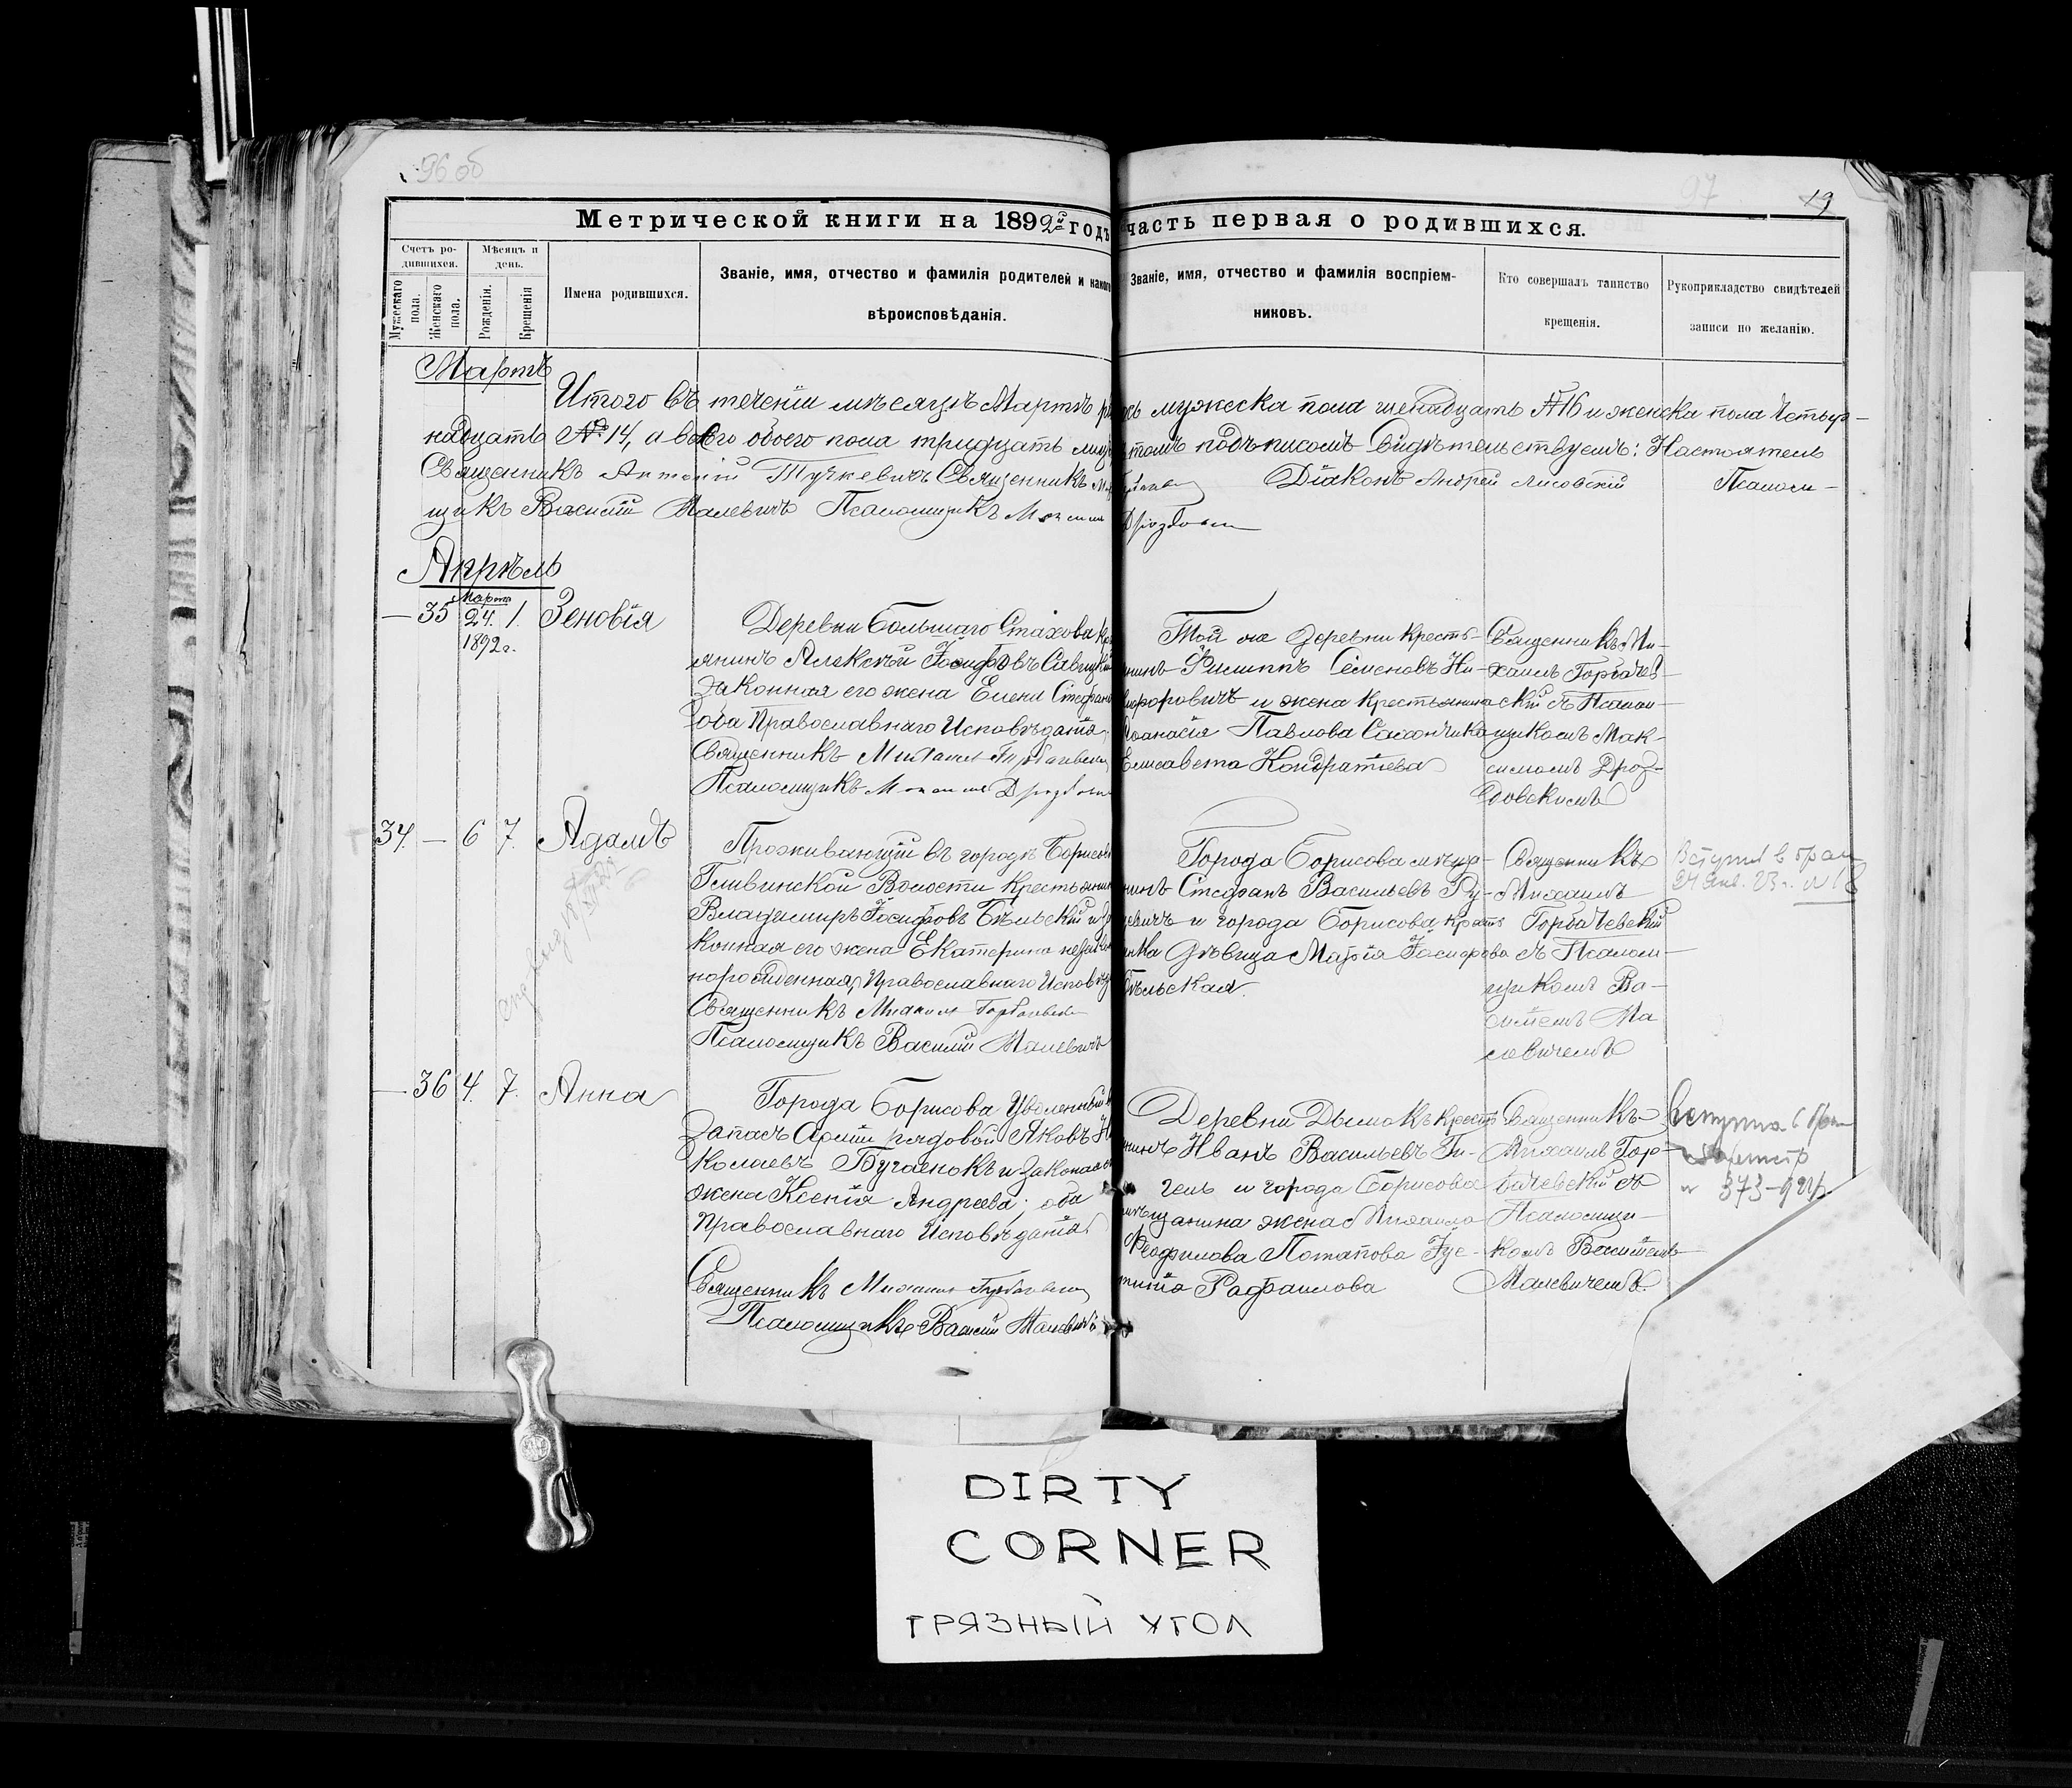 96 об
97
19
Метрической книги на 1892й годъ часть первая о родившихся.
Счетъ родившихся.
Мужескаго пола.
Женскаго пола.
Мѣсяцъ и день.
Рожденія.
Крещенія
Имена родившихся.
Званіе, имя, отчество и фамилія родителей и какого
вѣроисповѣданія.
Званіе, имя, отчество и фамилія воспріем-
никовъ.
Кто совершалъ таинство
крещенія.
Рукоприкладство свидѣтелей
записи по желанію.
Мартъ
Итого въ теченіи мѣсяцѣ Мартѣ мужеска пола шенадцать № 16 и женска пола Четыр-
надцать № 14, а всего обоего пола тридцать подъписомъ Свидѣтельствуемъ: Настоятель
Священникъ Антоній Тучкевичъ Священникъ Діаконъ Андрей Лисовскій Псалом-
щикъ Василій Малевичъ Псаломщикъ
Апрѣль
— 35 Марта 24. 1. Зеновія
1892 г.
Деревни Большаго Стахова
янинъ Алексѣй Іосифовъ Савицкій
Законная его жена Елена Стефан
оба Православнаго Исповѣданія
Священникъ Михаилъ Горбачевскій
Псаломщикъ
Той же деревни кресть-
янинъ Филиппъ Семеновъ Ни-
кифоровичъ и жена крестьянина
Аѳанасія Павлова
Елисавета Кондратіева
Священникъ Ми-
хаилъ Горбачев-
скій съ Псалом-
щикомъ Мак-
симомъ Дроз-
довскимъ
34. — 6 7. Адамъ
Проживающій въ городѣ Борисовѣ
Гливинской Волости крестьянин
Владимиръ Іосифовъ Бѣльскій и за
конная его жена Екатерина незакон
норожденная, Православнаго Исповѣд
Священникъ Михаилъ Горбачевскій
Псаломщикъ Василій Малевичъ
Города Борисова мѣща-
нинъ Стефанъ Васильевъ Ру-
цевичъ и города Борисова крестъ
янка дѣвица Марія Іосифова
Бѣльская.
Священникъ
Михаилъ
Горбачевскій
съ Псалом-
щикомъ Ва-
силіемъ Ма
левичемъ
Вступил в брак
24 янв. 23 г. № 18
— 36 4. 7. Анна
Города Борисова Уволенный въ
Запасъ Арміи рядовой Яковъ Ни
колаевъ Бугаенокъ и законная
жена Ксенія Андреева; оба
Православнаго Исповѣданія
Священникъ Михаилъ Горбачевскій
Псаломщикъ Василій Малевичъ
Деревни Дымокъ кресть
янинъ Иванъ Васильевъ Ги-
чель и города Борисова
мѣщанина жена Михаила
Ѳеофилова Потапова Іус-
тина Рафаилова
Священникъ
Михаилъ Гор-
бачевскій съ
Псаломщи-
комъ Василіемъ
Малевичемъ.
№ 373
DIRTY
CORNER
ГРЯЗНЫЙ УГОЛ